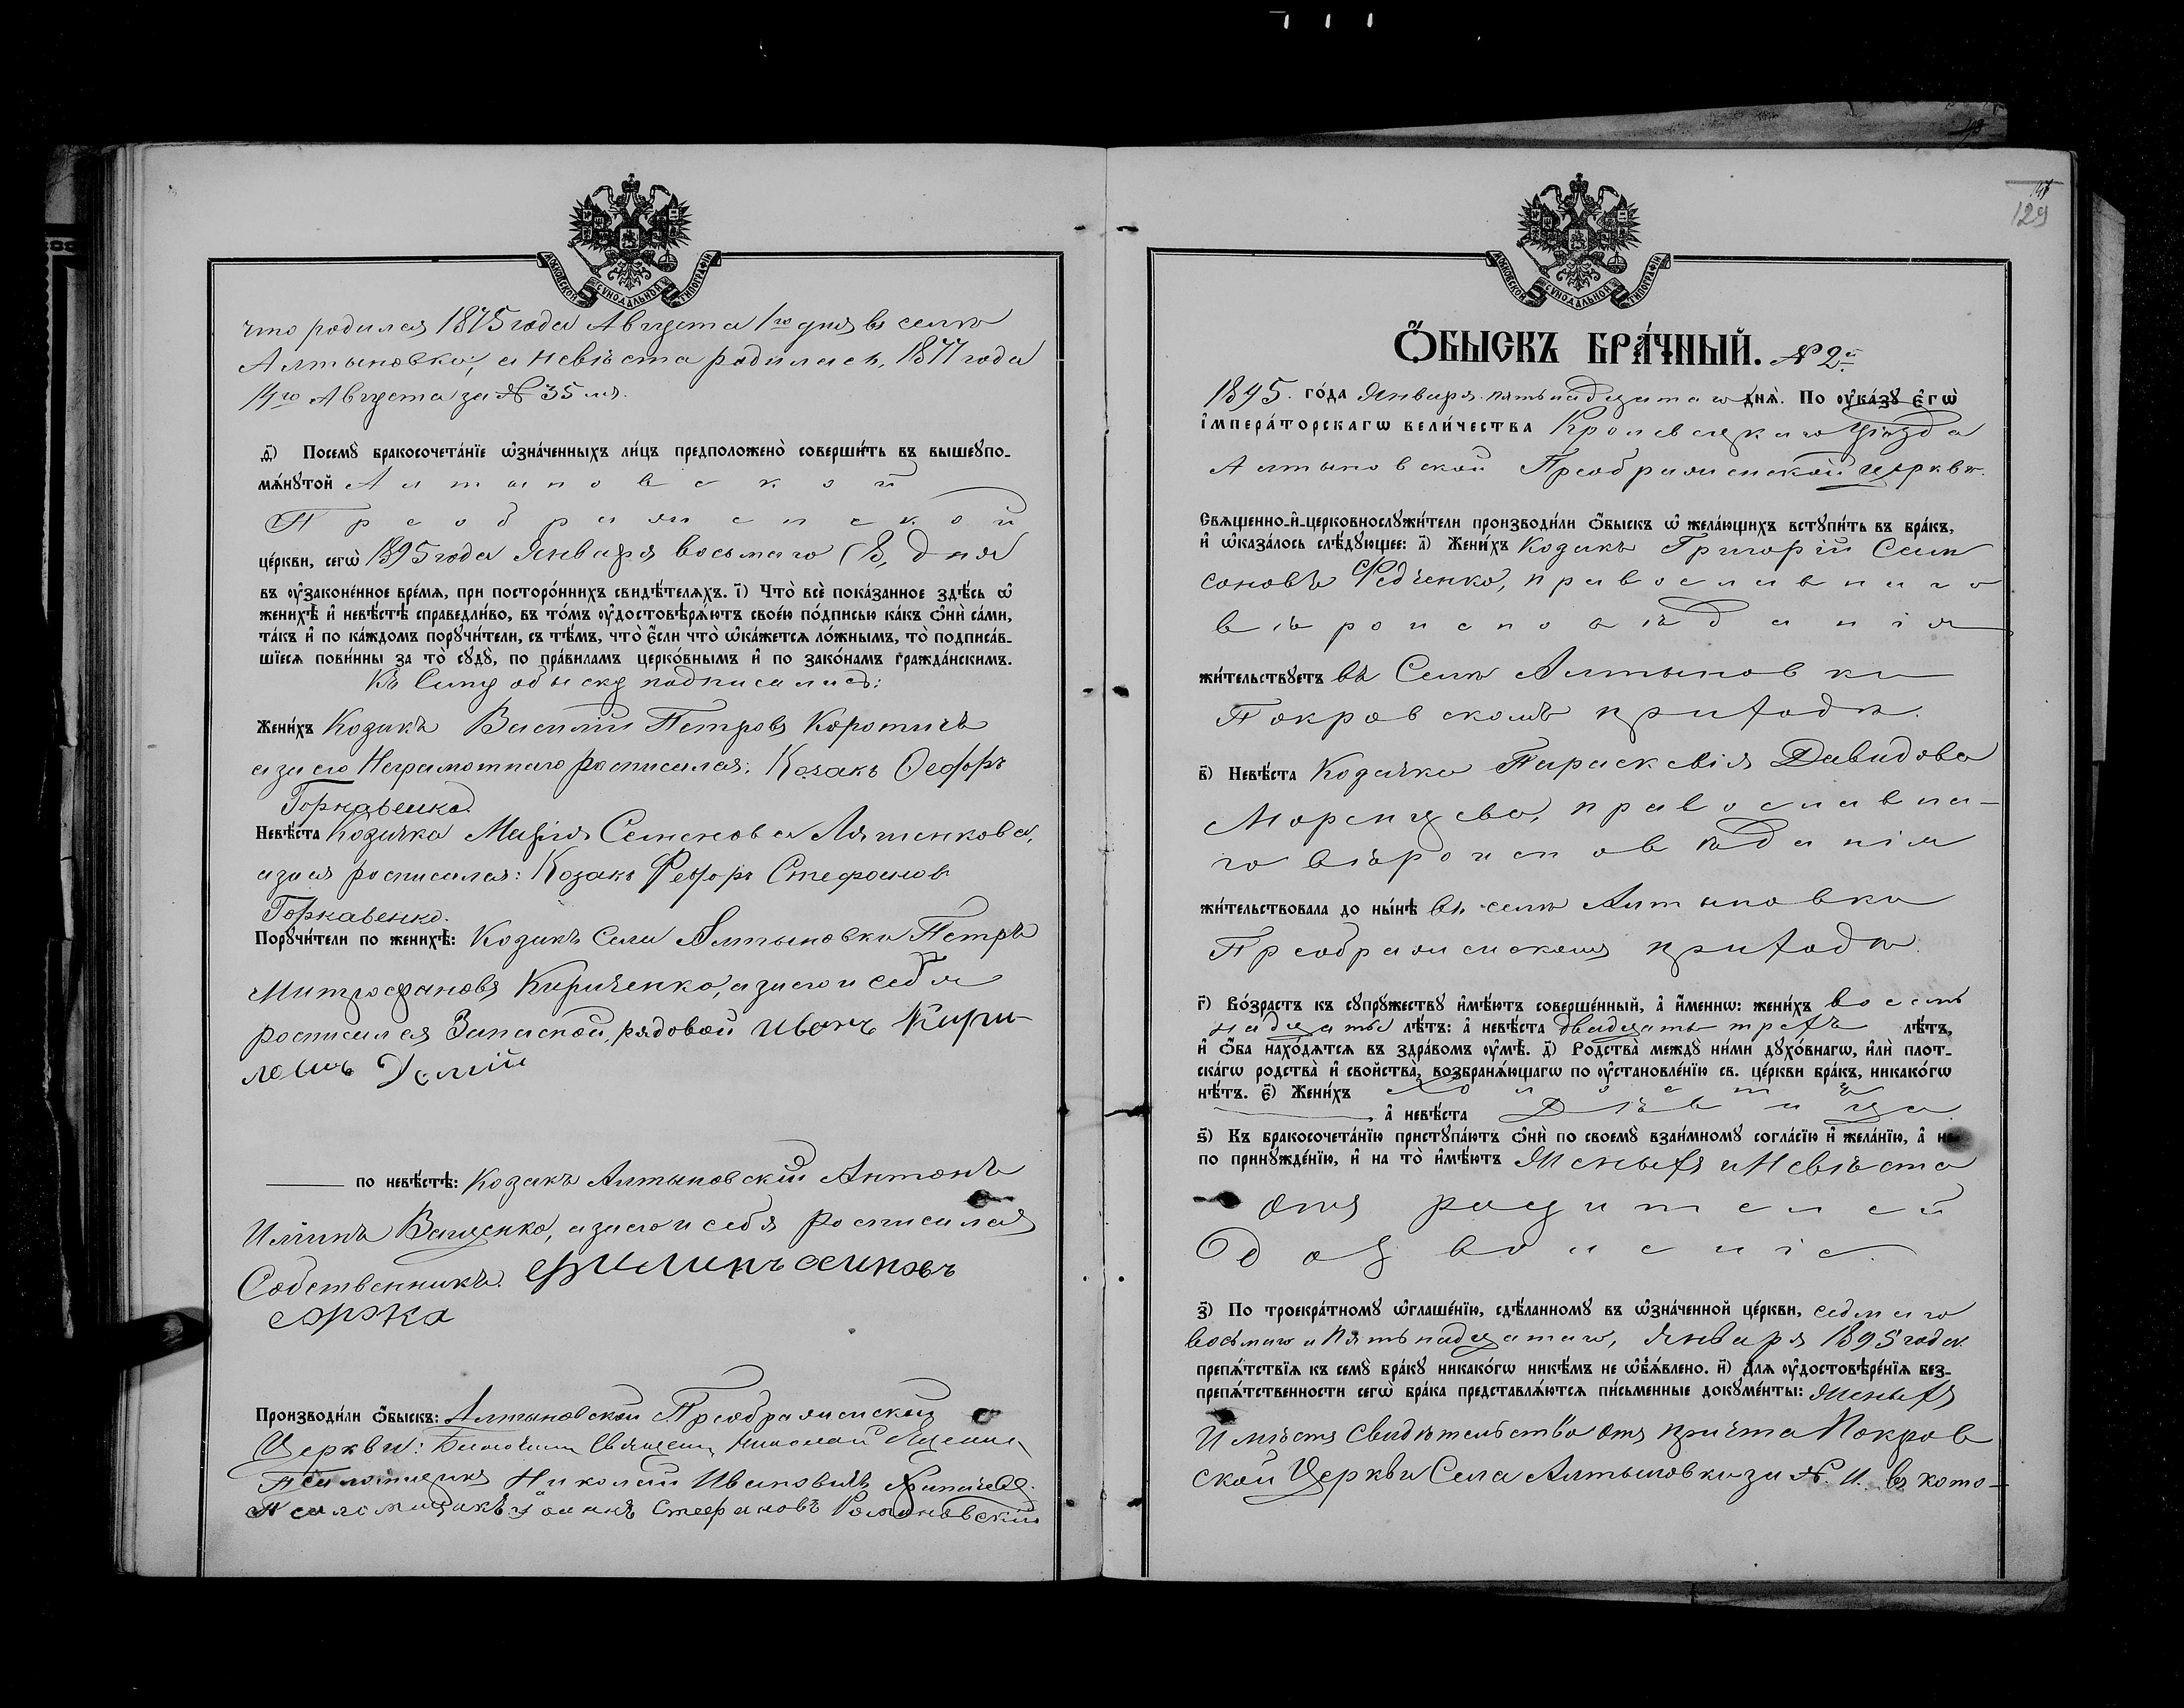 МОСКОВСКОЙ СУНОДАЛЬНОЙ ТИПОГРАФІИ
что родился 1875 года Августа 1го дня въ селѣ
Алтыновкѣ, а невѣста родилась 1877 года
14го Августа за № 35 мъ.
ѳ҃) Посемꙋ̀ бракосочета́нїе ѡ҆зна́ченныхъ ли́цъ предположено̀ соверши́ть въ вышеꙋпо-
мѧ́нꙋтой Алтыновской
Преображенской
це́ркви, сегѡ̀ 1895 года Января восьмаго (8) дня
въ ᲂу҆зако́ненное вре́мѧ, при посторо́ннихъ свидѣ́телѧхъ. і҃) Что̀ всѐ пока́занное здѣ́сь ѡ҆
женихѣ̀ и҆ невѣ́стѣ справедли́во, въ то́мъ ᲂу҆достовѣрѧ́ютъ свое́ю по́дписью ка́къ ѻ҆нѝ са́ми,
та́къ и҆ по ка́ждомъ порꙋчи́тели, съ тѣ́мъ, что̀ є҆́сли что̀ ѡ҆ка́жетсѧ ло́жнымъ, то̀ подписа́в-
шїесѧ пови́нны за то̀ сꙋдꙋ̀, по пра́виламъ церко́внымъ и҆ по зако́намъ гражда́нскимъ.
Къ сему обыску подписались:
Жени́хъ Козакъ Василій Петровъ Коротичъ
а за его Неграмотнаго росписался: Козакъ Ѳеодоръ
Горкавенко.
Невѣ́ста Козачка Марія Семенова Ляшенкова,
а за ея росписался: Козакъ Феодоръ Стефановъ
Горкавенко.
Порꙋчи́тели по женихѣ̀: Козакъ села Алтыновки Петръ
Митрофановъ Кириченко, а за его и себя
росписался Запасной, рядовой Иванъ Кири-
ловъ
по невѣ́стѣ: Козакъ Алтыновскій Антонъ
Ващенко, а за его и себя росписался
Собственникъ. Филипъ
Производи́ли ѻ҆́быскъ: Алтыновской Преображенской
Церкви: Священ. Николай
Псаломщикъ Николай Ивановичъ
Псаломщикъ Іоаннъ Стефановъ Романовскій
129
МОСКОВСКОЙ СУНОДАЛЬНОЙ ТИПОГРАФІИ
Ѻ҆́БЫСКЪ БРА́ЧНЫЙ. № 2й
1895. го́да Января пятьнадцатаго днѧ̀. По ᲂу҆ка́зꙋ є҆гѡ̀
і҆мпера́торскагѡ вели́чества Кролевецкаго Уѣзда
Алтыновской Преображенской церкви.
Свѧщенно-и҆-церковнослꙋжи́тели производи́ли ѻ҆́быскъ ѡ҆ жела́ющихъ встꙋпи́ть въ бра́къ,
и҆ ѡ҆каза́лось слѣ́дꙋющее: а҃) Жени́хъ Козакъ Григорій Сам-
соновъ Федченко, православнаго
вѣроисповѣданія
жи́тельствꙋетъ въ Селѣ Алтыновки
Покровскомъ приходѣ.
в҃) Невѣ́ста Козачка Параскевія Давидова
православна-
го вѣроисповѣданія
жи́тельствовала до ны́нѣ въ селѣ Алтыновки
Преображенскомъ приходѣ.
г҃) Во́зрастъ къ сꙋпрꙋ́жествꙋ и҆мѣ́ютъ соверше́нный, а҆ и҆́меннѡ: жени́хъ восем-
надцати лѣ́тъ: а҆ невѣ́ста двадцати трехъ лѣ́тъ,
и҆ ѻ҆́ба нахо́дѧтсѧ въ здра́вомъ ᲂу҆мѣ̀. д҃) Родства̀ междꙋ̀ ни́ми дꙋхо́внагѡ, и҆лѝ плот-
ска́гѡ родства̀ и҆ сво́йства, возбранѧ́ющагѡ по ᲂу҆становле́нїю св. це́ркви бра́къ, никако́гѡ
нѣ́тъ. є҃) Жени́хъ Холостъ
а҆ невѣ́ста Дѣвица.
ѕ҃) Къ бракосочета́нїю пристꙋпа́ютъ ѻ҆нѝ по своемꙋ̀ взаи́мномꙋ согла́сїю и҆ жела́нїю, а҆ не
по принꙋжде́нїю, и҆ на то̀ и҆мѣ́ютъ Женихъ и Невѣста
отъ родителей
дозволеніе.
з҃) По троекра́тномꙋ ѡ҆глаше́нїю, сдѣ́ланномꙋ въ ѡ҆зна́ченной це́ркви, седмаго
восьмаго и Пятьнадцатаго, января 1895 года.
препѧ́тствїѧ къ семꙋ̀ бра́кꙋ никако́гѡ никѣ́мъ не ѡ҆б̾ѧ́влено. и҃) Длѧ ᲂу҆достовѣре́нїѧ без-
препѧ́тственности сегѡ̀ бра́ка представлѧ́ютсѧ пи́сьменные докꙋме́нты: Женихъ
Имѣетъ свидѣтельство отъ причта Покров
ской Церкви Села Алтыновки за № 11. въ кото-